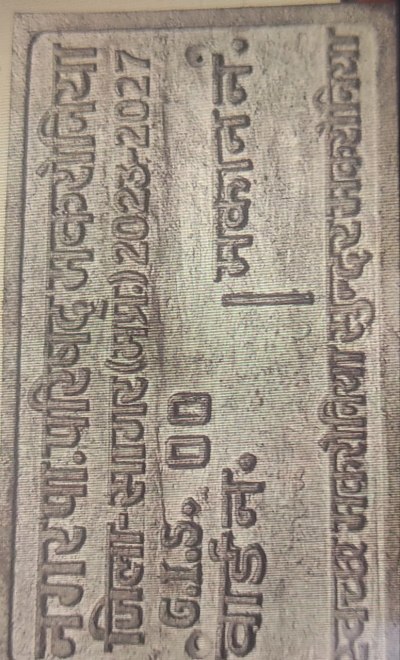 नगरपालिका परिषद् मकरोनिया
जिला-सागर(म.प्र.)2023-2027
G.I.S. 00
वार्ड नं. | मकान नं.
स्वच्छ मकरोनिया सुन्दर मकरोनिया